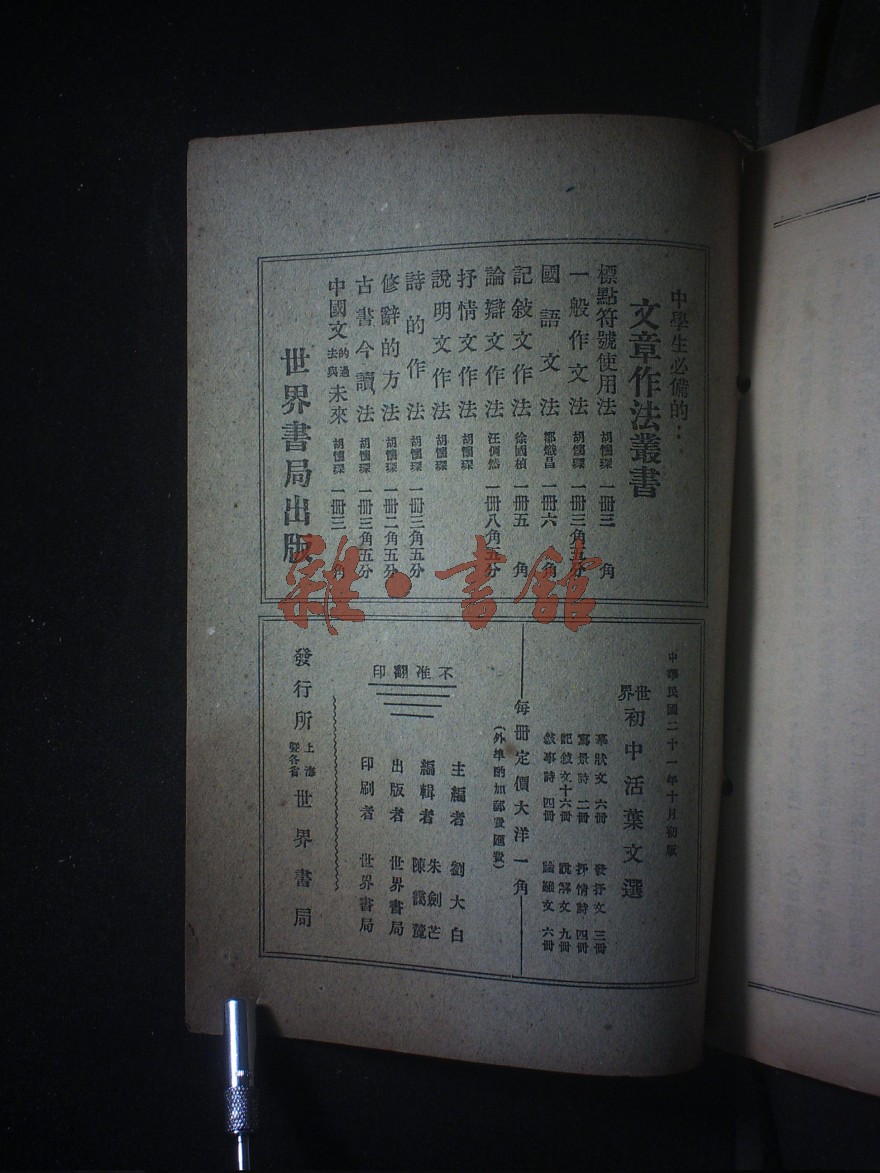 中學生必備的：
文章作法叢書
標點符號使用法 胡懷琛 一冊三角
一般作文法 胡懷琛 一冊三角五分
國語文法 鄒熾昌 一冊六角
記敍文作法 徐國楨 一冊五角
論辯文作法 汪倜然 一冊八角五分
抒情文作法 胡懷琛
說明文作法 胡懷琛
詩的作法 胡懷琛 一冊三角五分
修辭的方法 胡懷琛 一冊二角五分
古書今讀法 胡懷琛 一冊三角五分
中國文的過去與未來 胡懷琛 一冊三角
世界書局出版
雜·書館
中華民國二十一年十月初版
世界初中活葉文選
事狀文 六冊 發抒文 三冊
寫景詩 二冊 抒情詩 四冊
記敍文十六冊 說解文 九冊
敍事詩 四冊 論難文 六冊
每冊定價大洋一角
（外埠酌加郵費匯費）
主編者 劉大白
編輯者 朱劍芒 陳靄麓
出版者 世界書局
印刷者 世界書局
不准翻印
發行所 上海暨各省 世界書局